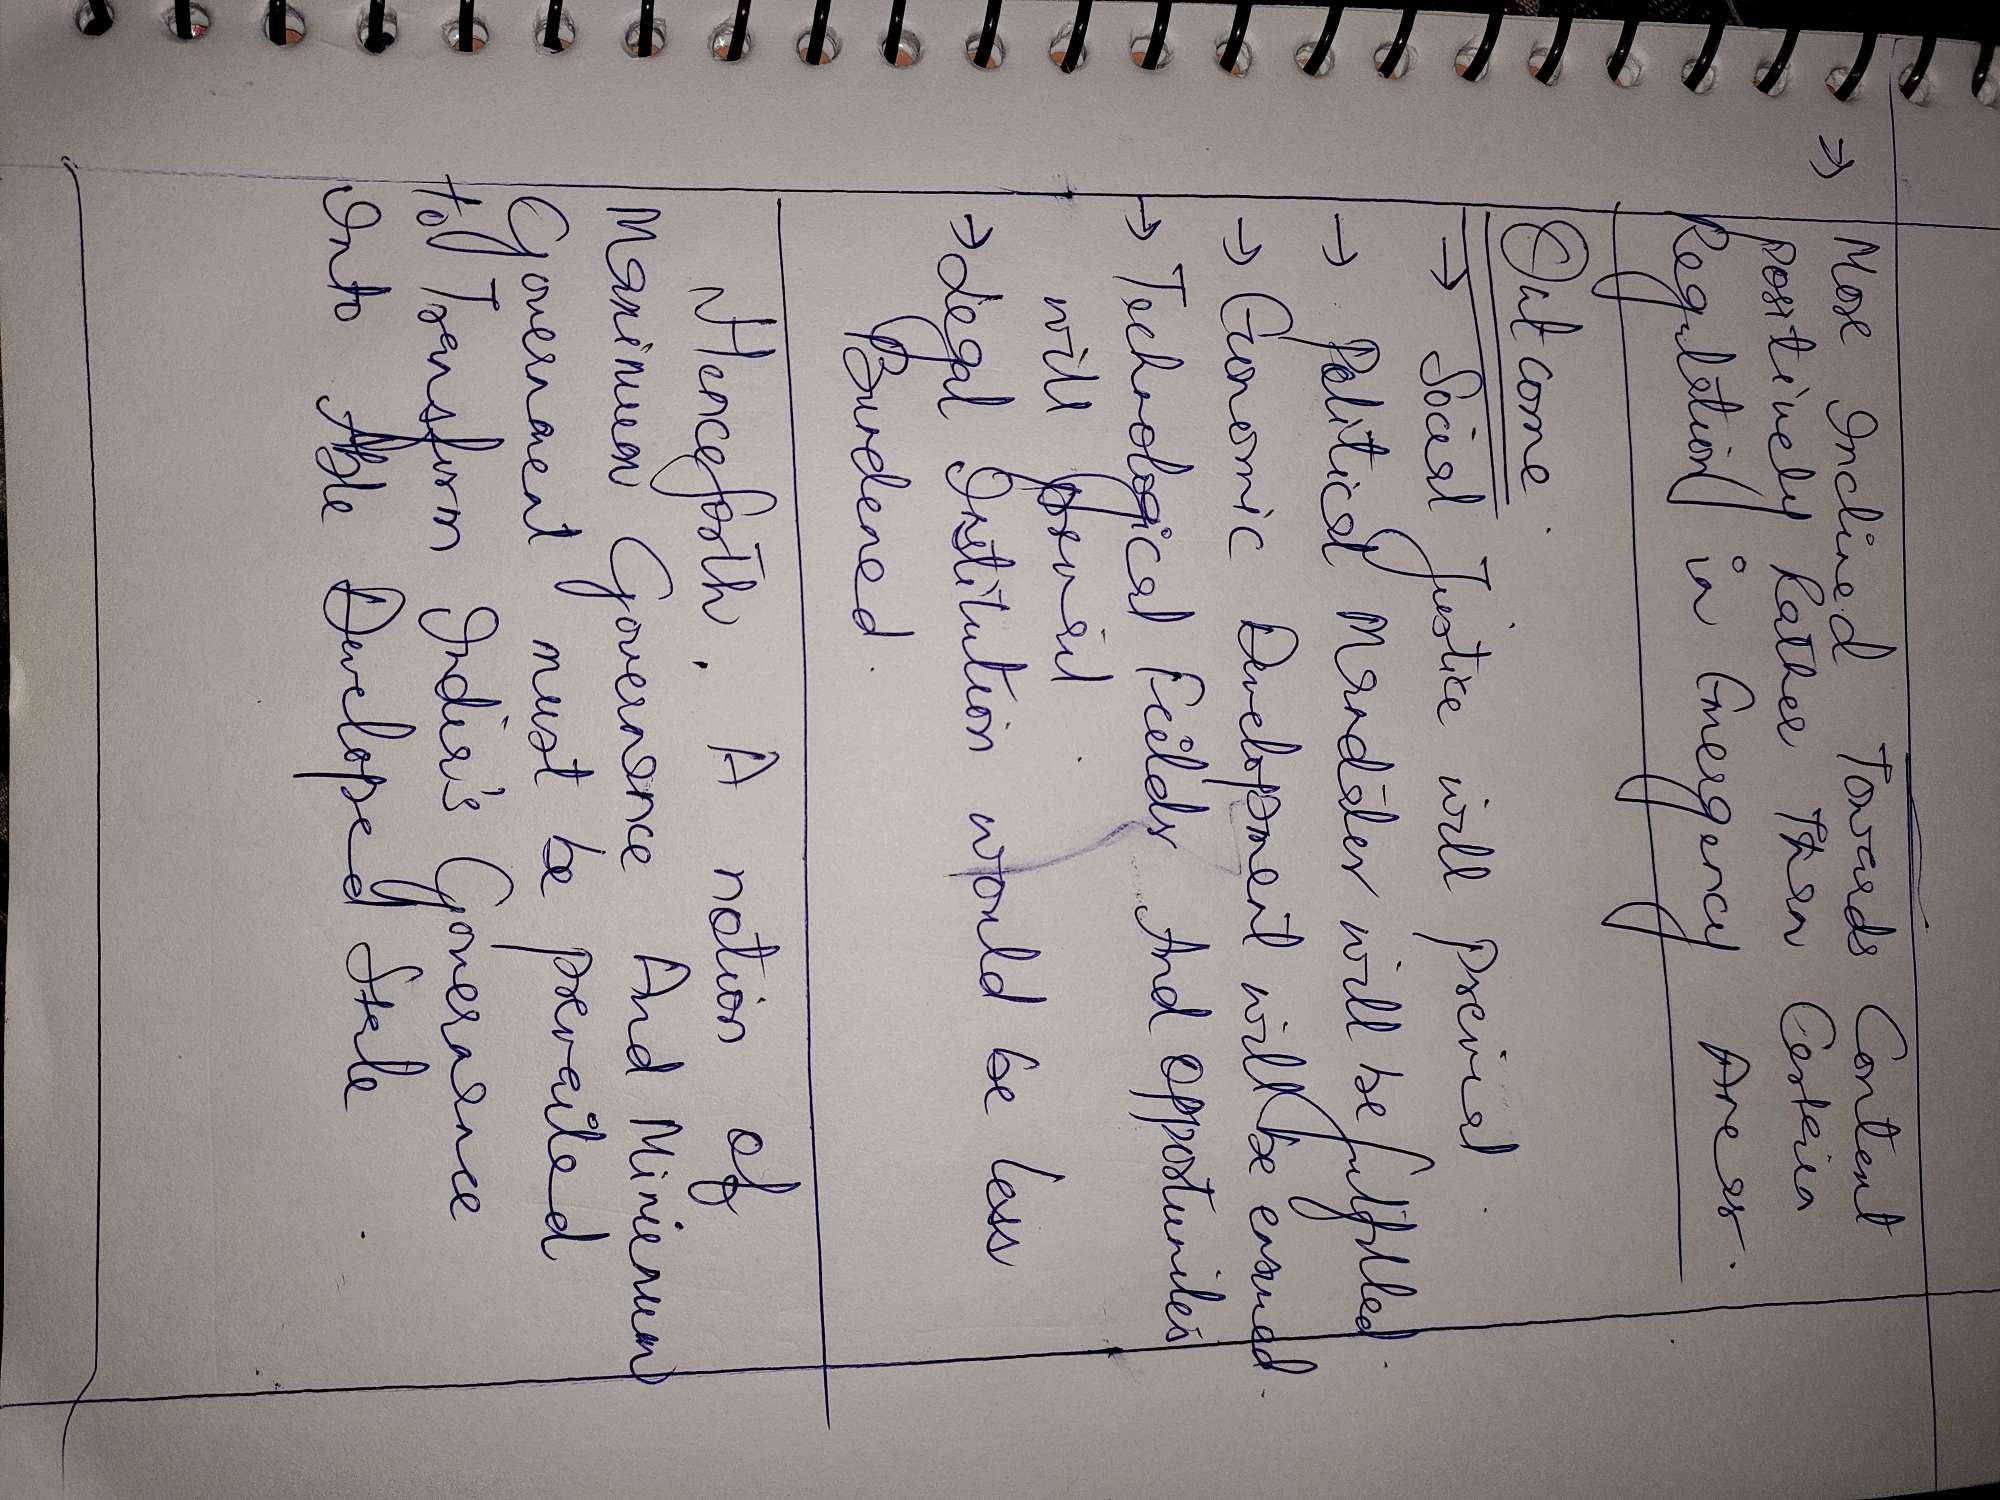 → More Inclined Towards Content
Positively Rather Than Certain
Regulation in Emergency Areas.
Outcome
→ Social Justice will prevail
→ Political Mandates will be fulfilled.
→ Economic Development will be ensured.
→ Technological Fields And opportunities
will prevail
→ Legal Institution would be less
Burdened.
Henceforth, A notion of
Maximum Governance And Minimum
Government must be prevailed
to Transform India's Governance
Into Able Developed State.